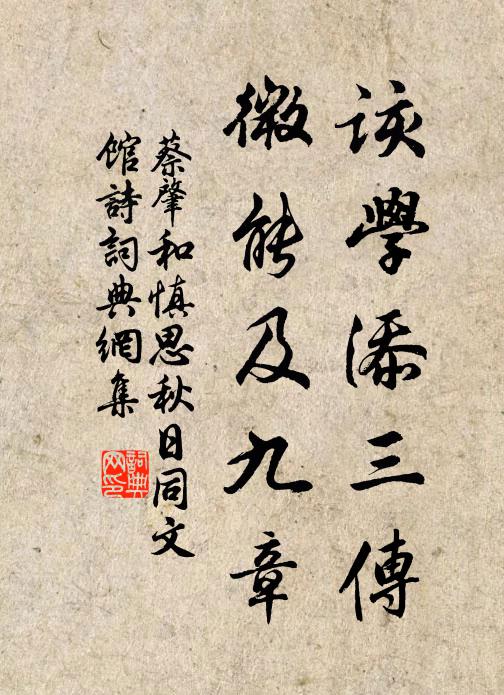 該學添三傳
微能及九章
蔡肇和慎思秋日同文
館詩詞典網集
詞典
网印